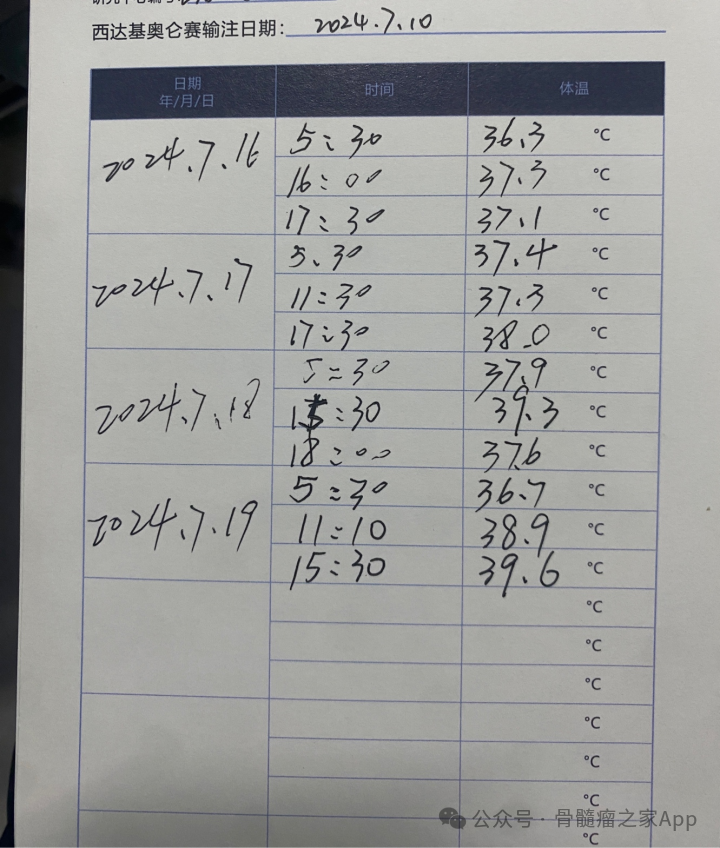 西达基奥仑赛输注日期: 2024.7.10
日期 时间 体温
年/月/日
2024.7.16 5:30 36.3 ℃
16:00 37.3 ℃
17:30 37.1 ℃
2024.7.17 5.30 37.4 ℃
11:30 37.3 ℃
17:30 38.0 ℃
2024.7.18 5:30 37.9 ℃
15:30 39.3 ℃
18:00 37.6 ℃
2024.7.19 5:30 36.7 ℃
11:10 38.9 ℃
15:30 39.6 ℃
℃
℃
℃
℃
℃
℃
℃
公众号·骨髓瘤之家App